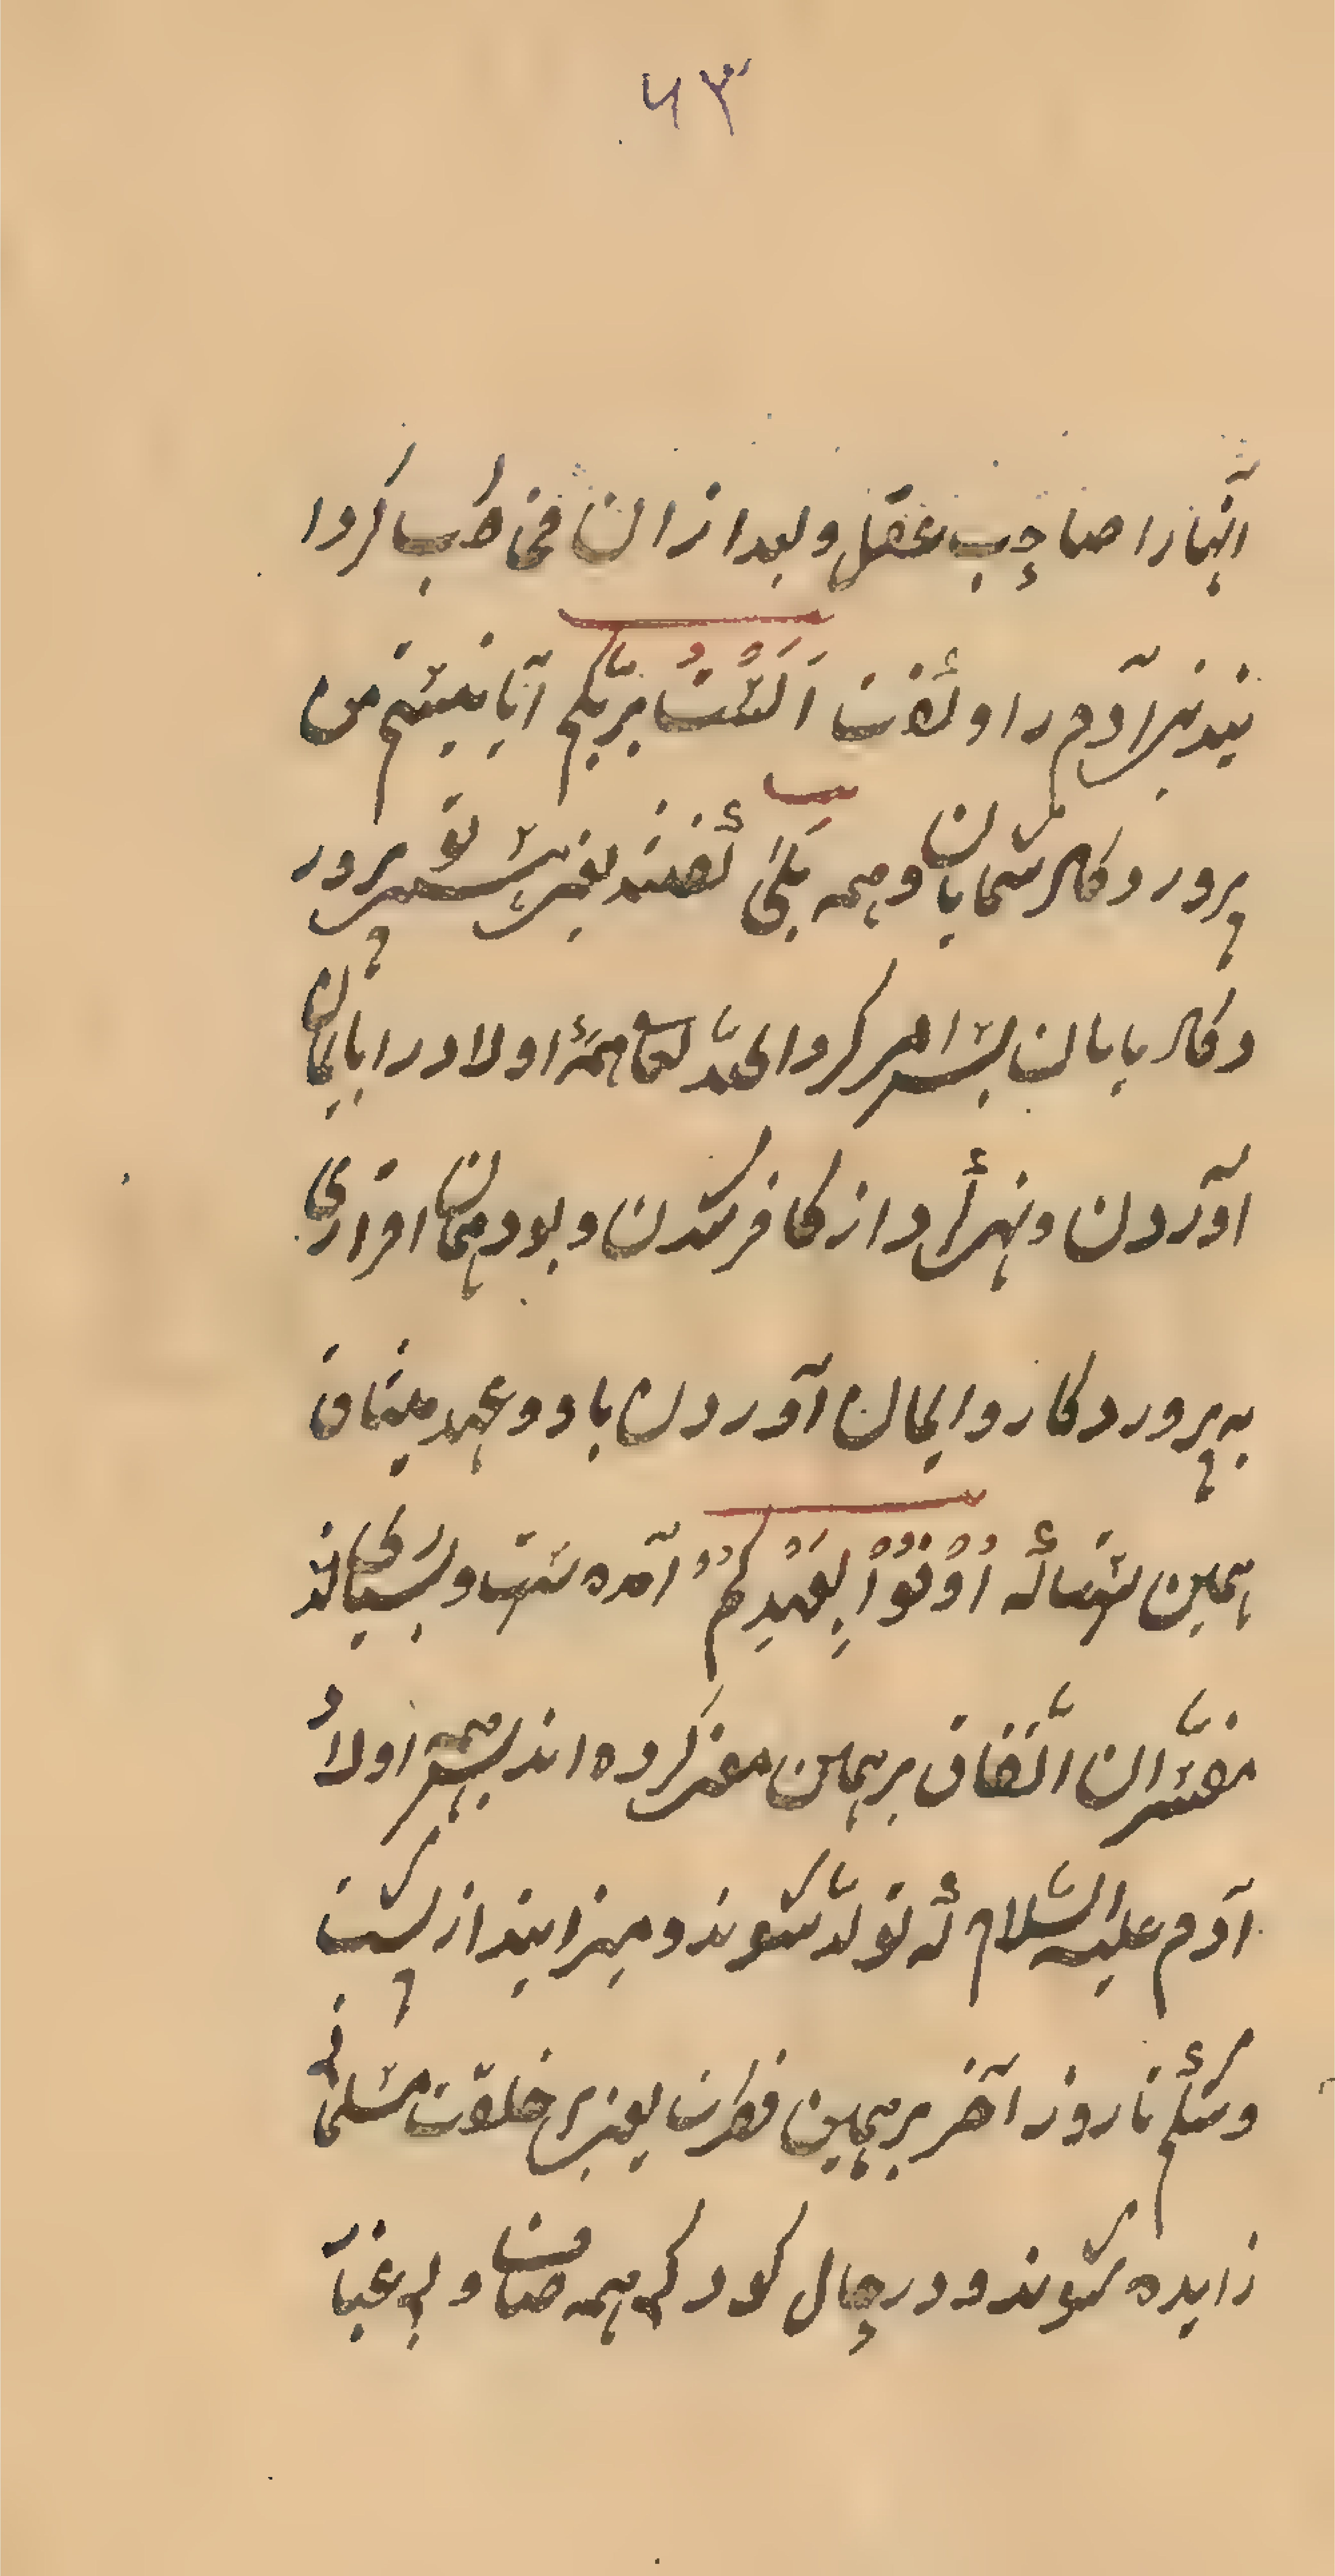 ۶۳
انهارا صاحب عقل و بعد ازان مخاطب کردا
نیدنیر آدم را و گفت اَلَسْتُ بِرَبِّکُم آیا نیستم من
پرور دکار شمایان و همه بَلیٰ گفتند یعنی هستی تو پرور
دکار یایان پس امر کرد الحدّ تعا همهٔ اولاد را با یمان
آوردن و نهی کرد از کافر شدن و بود همان اقراری
به پرور دکار و ایمان آوردن باو و عهد میثاق
همین ستسا که اَوْفُوْا بِعَهْدِکُمْ آمده ست و بسیاری اند
مفسّران اتّفاق بر همین معنی کرده اند پس همه اولاد
آدم علیه السّلام که تولّد شوند و میزایند از پشت
و شکم تا روز آخر بر همین فطرت یعنی بر خلقت مسلمانی
زایده شوند و در حال کودکی همه صاف و بی غبار